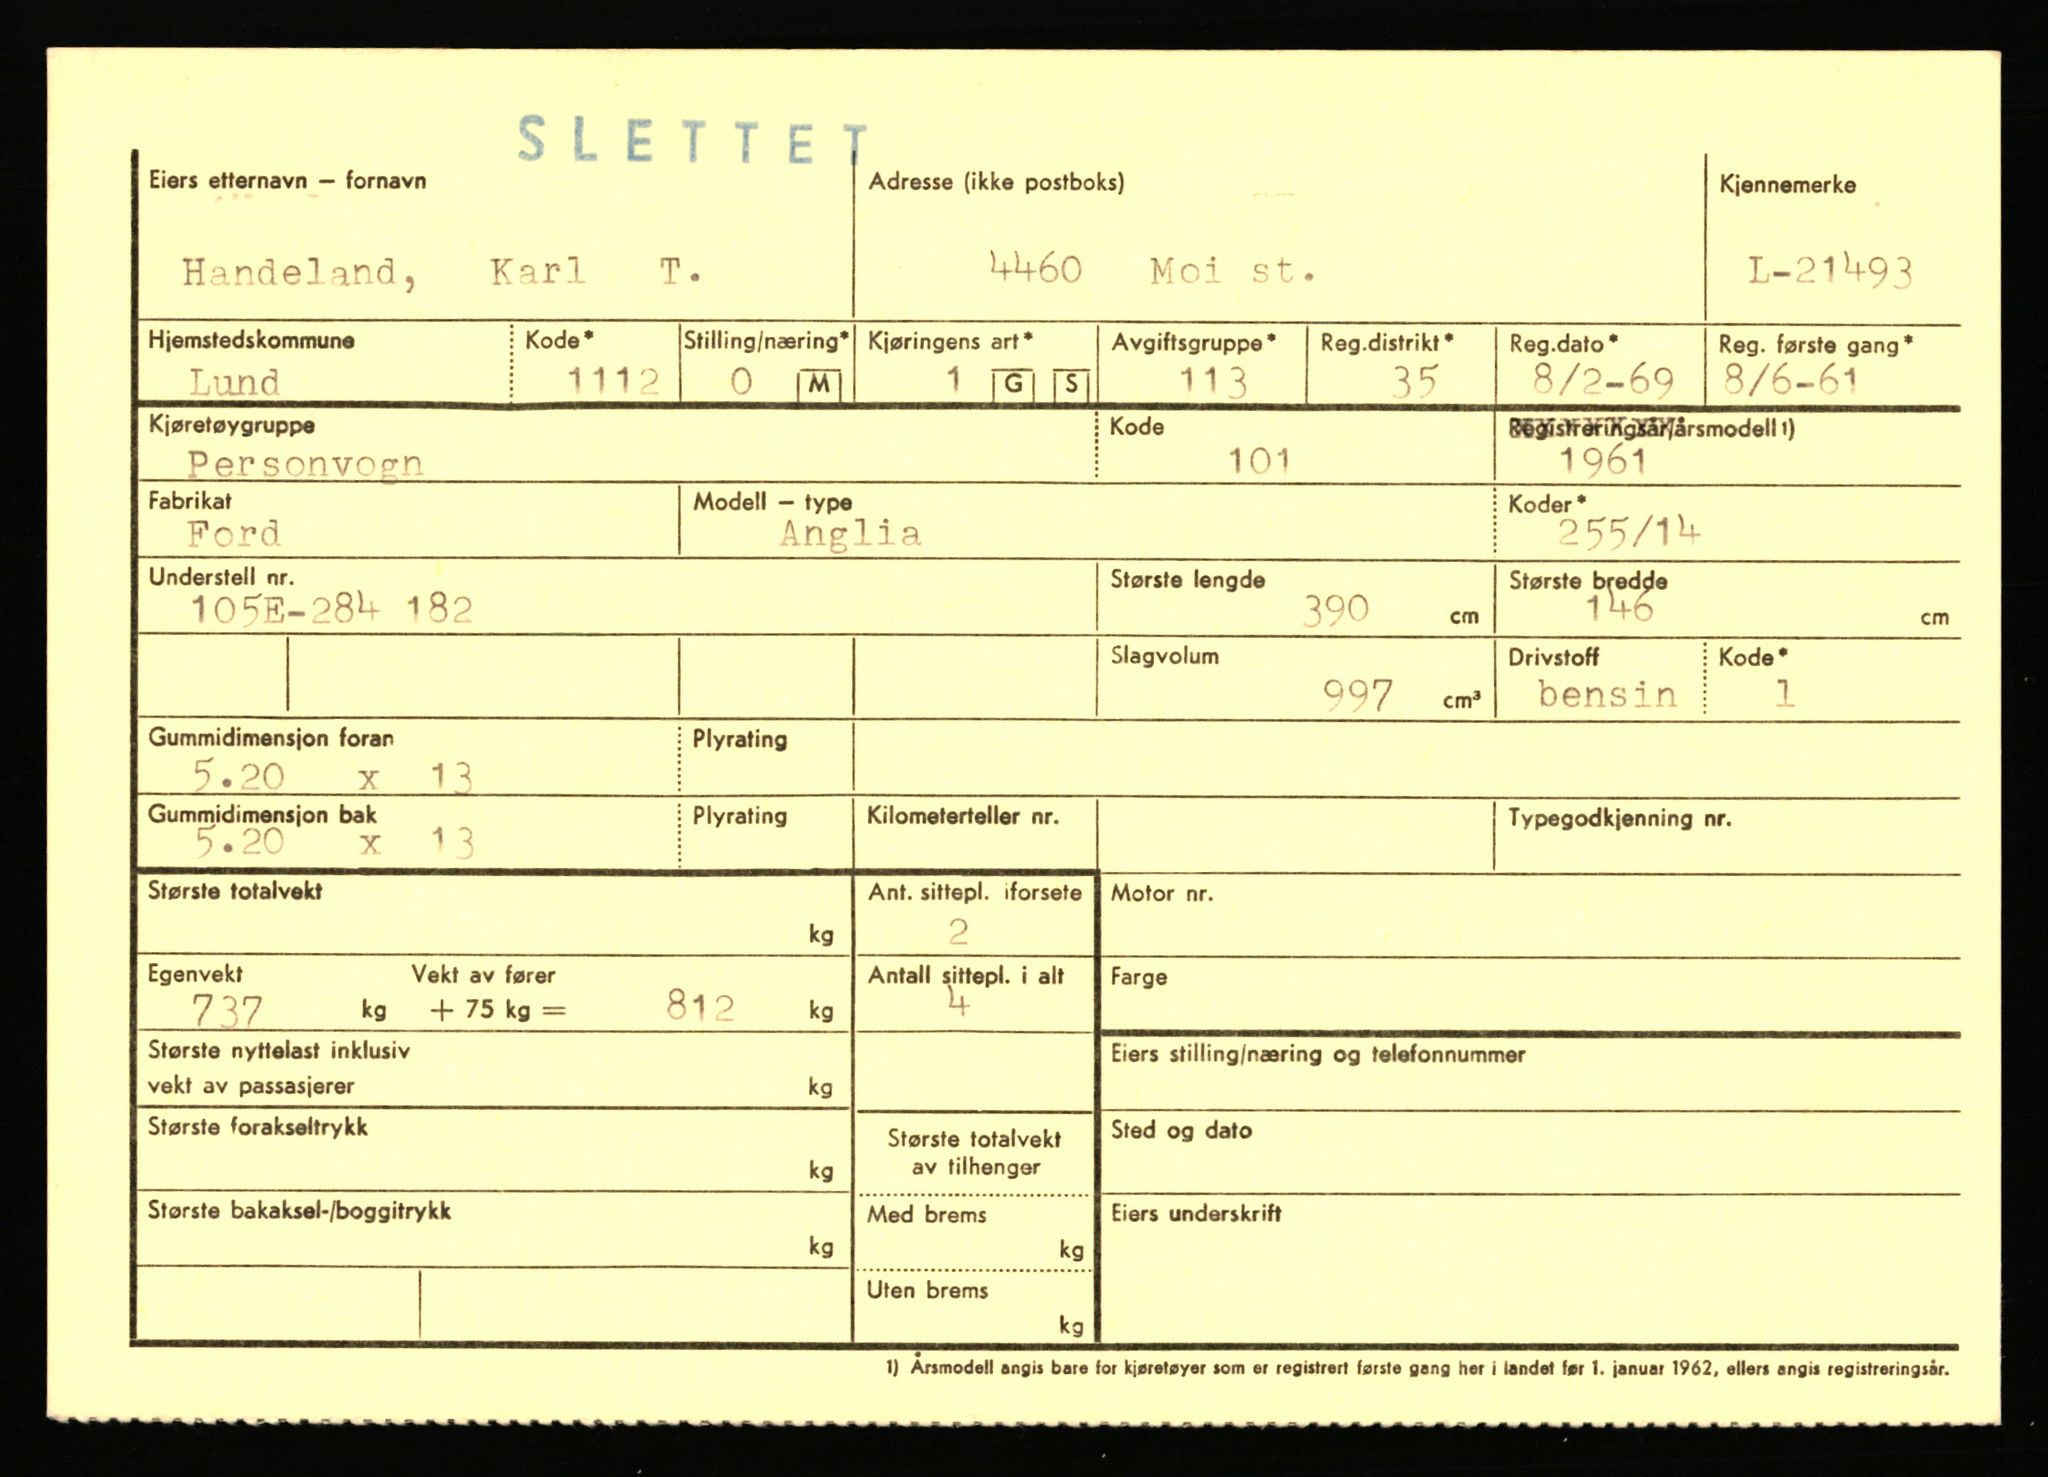 SLETTET
Eiers etternavn – fornavn Adresse (ikke postboks) Kjennemerke
Handeland, Karl T. 4460 Moi st. L-21493
Hjemstedskommune Kode* Stilling/næring* Kjøringens art* Avgiftsgruppe* Reg.distrikt* Reg.dato* Reg. første gang*
Lund 1112 0 M 1 G S 113 35 8/2-69 8/6-61
Kjøretøygruppe Kode Registreringsår/årsmodell 1)
Personvogn 101 1961
Fabrikat Modell – type Koder*
Ford Anglia 255/14
Understell nr. Største lengde Største bredde
105E-284 182 390 cm 146 cm
Slagvolum Drivstoff Kode*
997 cm³ bensin 1
Gummidimensjon foran Plyrating
5.20 x 13
Gummidimensjon bak Plyrating Kilometerteller nr. Typegodkjenning nr.
5.20 x 13
Største totalvekt Ant. sittepl. iforsete Motor nr.
kg 2
Egenvekt Vekt av fører Antall sittepl. i alt Farge
737 kg + 75 kg = 812 kg 4
Største nyttelast inklusiv Eiers stilling/næring og telefonnummer
vekt av passasjerer kg
Største forakseltrykk Største totalvekt Sted og dato
kg av tilhenger
Største bakaksel-/boggitrykk Med brems Eiers underskrift
kg kg
Uten brems
kg
1) Årsmodell angis bare for kjøretøyer som er registrert første gang her i landet før 1. januar 1962, ellers angis registreringsår.